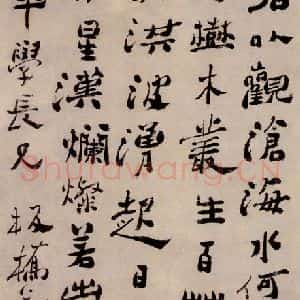 以觀滄海水何
樹木叢生百
洪波湧起日
星漢爛燦若出
年學長兄 板橋
Shufawang.CN